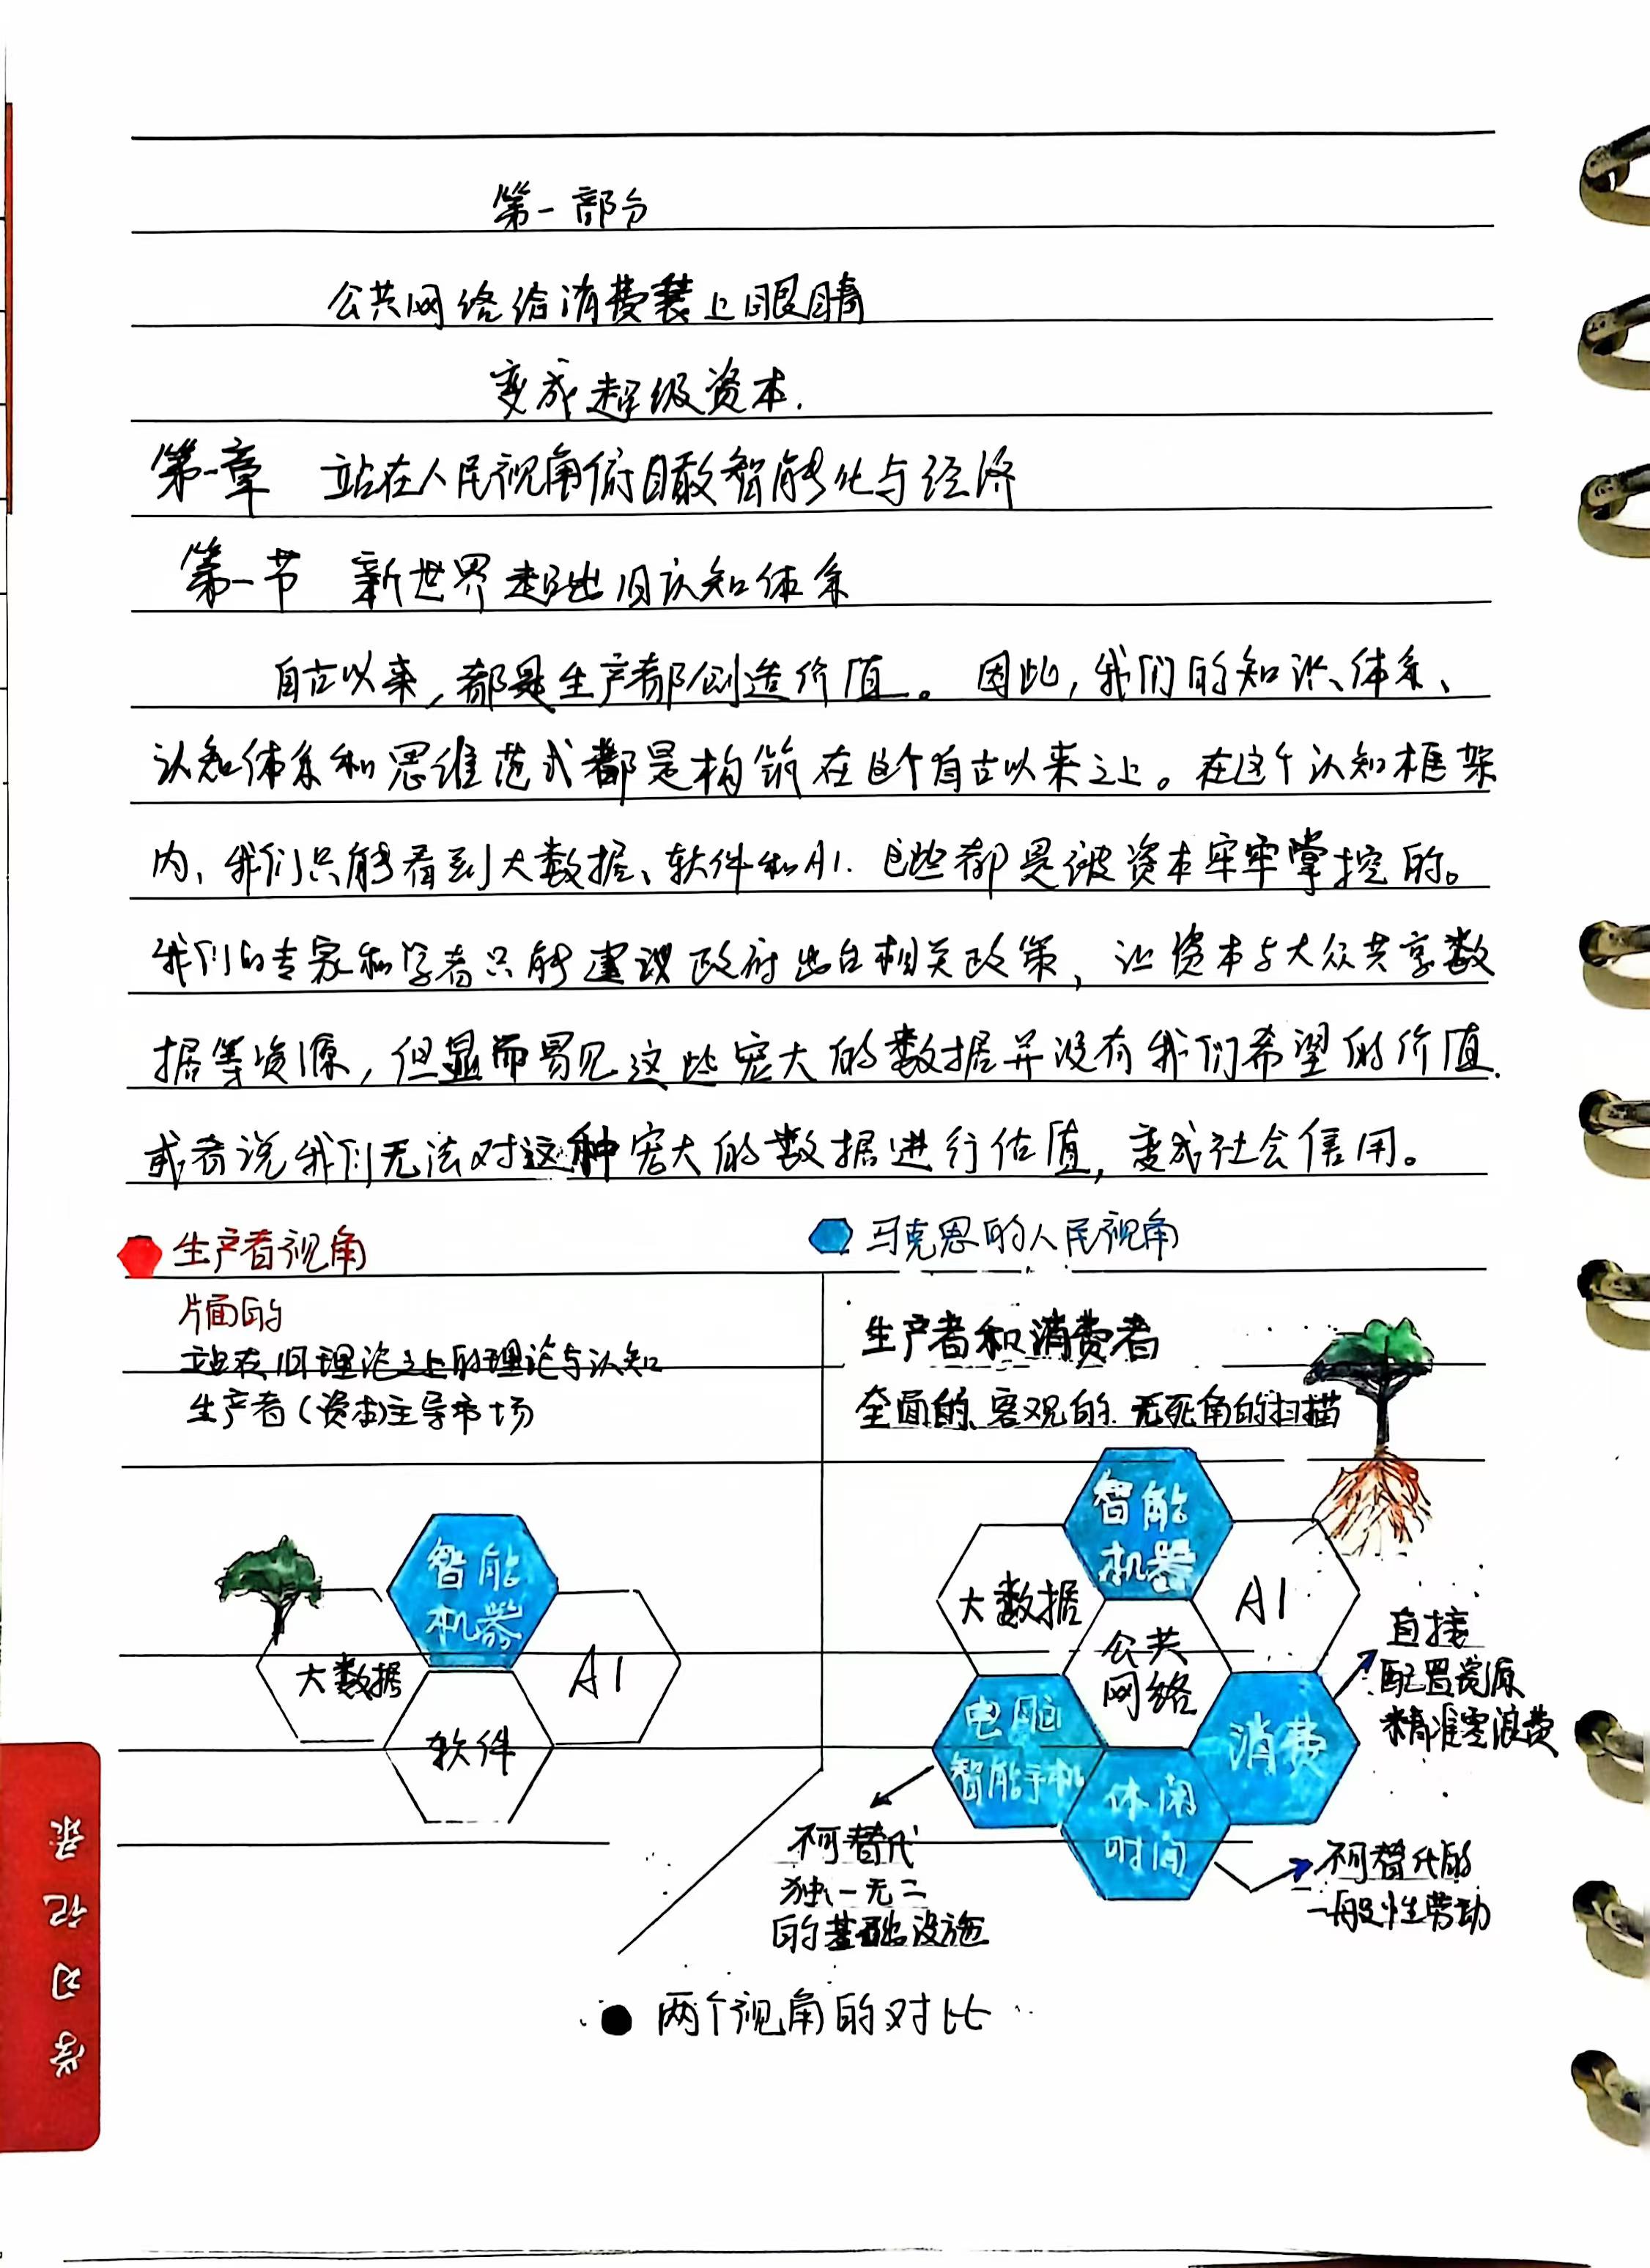 第一部分
公共网络给消费装上眼睛
变成超级资本.
第一章 站在人民视角俯瞰智能化与经济
第一节 新世界超出旧认知体系
自古以来,都是生产部创造价值。因此,我们的知识体系、
认知体系和思维范式都是构筑在这个自古以来之上。在这个认知框架
内,我们只能看到大数据、软件和AI.它些都是被资本牢牢掌控的。
我们的专家和学者只能建议政府出台相关政策,让资本与大众共享数
据等资源,但显而易见这些宠大的数据并没有我们希望的价值.
或者说我们无法对这种宠大的数据进行估值,变成社会信用。
生产者视角
片面的
站在旧理论之上的理论与认知
生产者(资本)主导市场
智能
机器
大数据
AI
软件
马克思的人民视角
生产者和消费者
全面的、客观的、无死角的扫描
智能
机器
大数据
AI
公共
网络
电脑
智能手机
消费
休闲
时间
直接
配置资源
精准零浪费
不可替代
独一无二
的基础设施
不可替代的
一般性劳动
两个视角的对比
学习记录